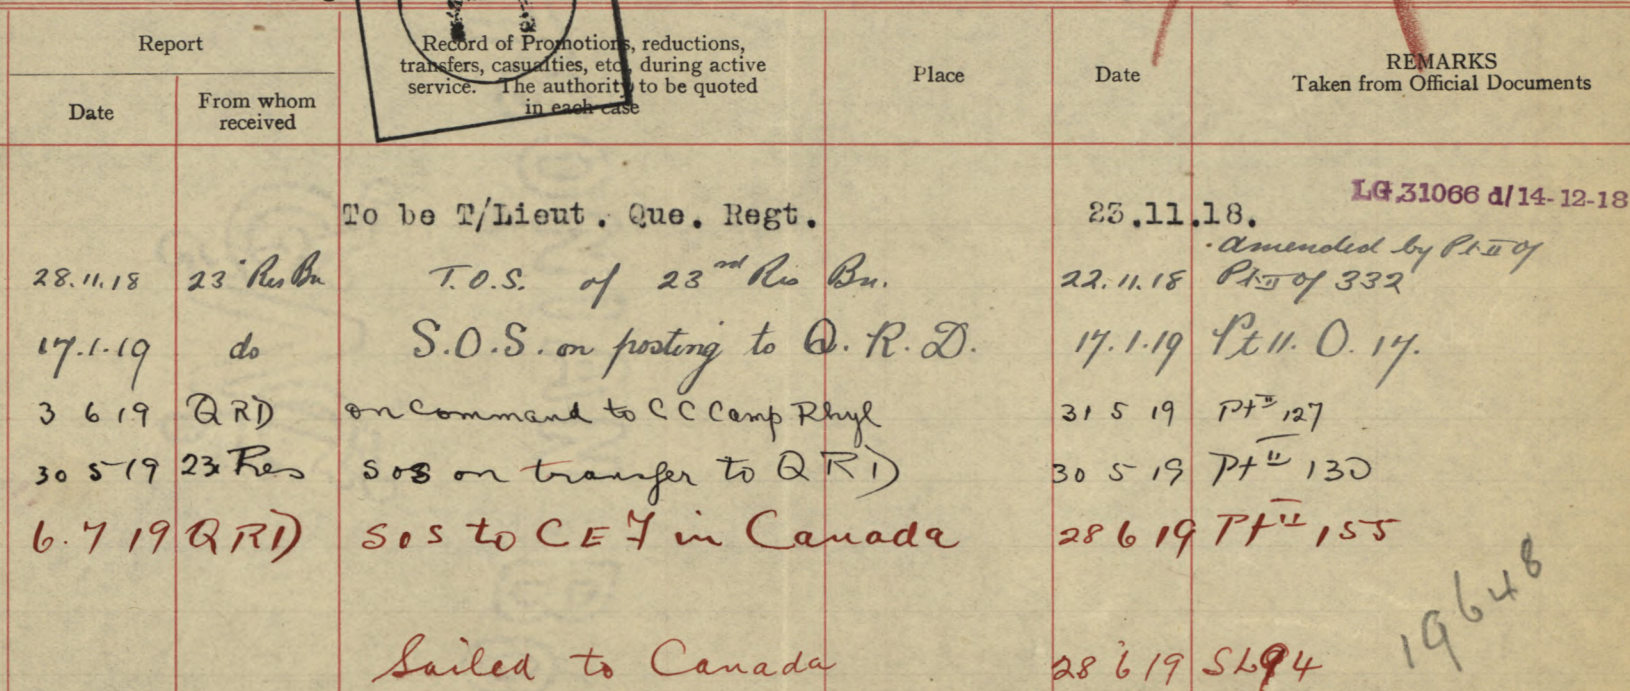 Report
Record of Promotions, reductions,
transfers, casualties, etc. during active
service. The authority to be quoted
in each case
Place
Date
REMARKS
Taken from Official Documents
Date
From whom
received
To be T/Lieut. Que. Regt. 23.11.18. LG.31066 d/14-12-18
amended by Pt II of
28.11.18 23 Res Bn T.O.S. of 23rd Res Bn. 22.11.18 Pt II of 332
17.1.19 do S.O.S. on posting to Q.R.D. 17.1.19 Pt 11. O. 17.
3 6 19 QRD on Command to C C Camp Rhyl 31 5 19 Pt II 127
30 5 19 23 Res SOS on transfer to QRD 30 5 19 Pt II 130
6.7 19 QRD SOS to CEF in Canada 28 6 19 Pt II 155
19648
Sailed to Canada 28 6 19 SL 94